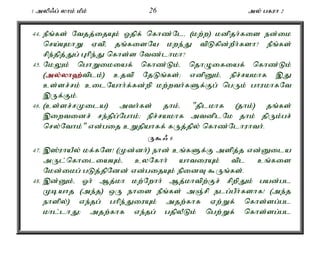 1 அலிஃப் லாம் மீம் 26 அல் பகரா 2
44. நீங்கள் வேதத்தையும் ஓதிக் கொண்டே, (மற்ற) மனிதர்களை நன்மை
செய்யுமாறு ஏவி, தங்களையே மறந்து விடுகின்றீர்களா? நீங்கள்
சிந்தித்துப் புரிந்து கொள்ள வேண்டாமா?
45. மேலும் பொறுமையைக் கொண்டும், தொழுகையைக் கொண்டும்
(அல்லாஹ்விடம்) உதவி தேடுங்கள்; எனினும், நிச்சயமாக இது
உள்ளச்சம் உடையோர்க்கன்றி மற்றவர்களுக்குப் பெரும் பாரமாகவே
இருக்கும்.
46. (உள்ளச்சமுடைய) அவர்கள் தாம், "திடமாக (தாம்) தங்கள்
இறைவனைச் சந்திப்போம்; நிச்சயமாக அவனிடமே தாம் திரும்பச்
செல்வோம்" என்பதை உறுதியாகக் கருத்தில் கொண்டோராவர்.
ருகூஃ 6
47. இஸ்ராயீல் மக்களே! (முன்னர்) நான் உங்களுக்கு அளித்த என்னுடைய
அருட்கொடையையும், உலகோர் யாவரையும் விட உங்களை
மேன்மைப் படுத்தினேன் என்பதையும் நினைவு கூருங்கள்.
48. இன்னும், ஓர் ஆத்மா மற்றோர் ஆத்மாவிற்குச் சிறிதும் பயன்பட
முடியாத (அந்த) ஒரு நாளை நீங்கள் அஞ்சி நடப்பீர்களாக! (அந்த
நாளில்) எந்தப் பரிந்துரையும் அதற்காக ஏற்றுக் கொள்ளப்பட
மாட்டாது; அதற்காக எந்தப் பதிலீடும் பெற்றுக் கொள்ளப்பட